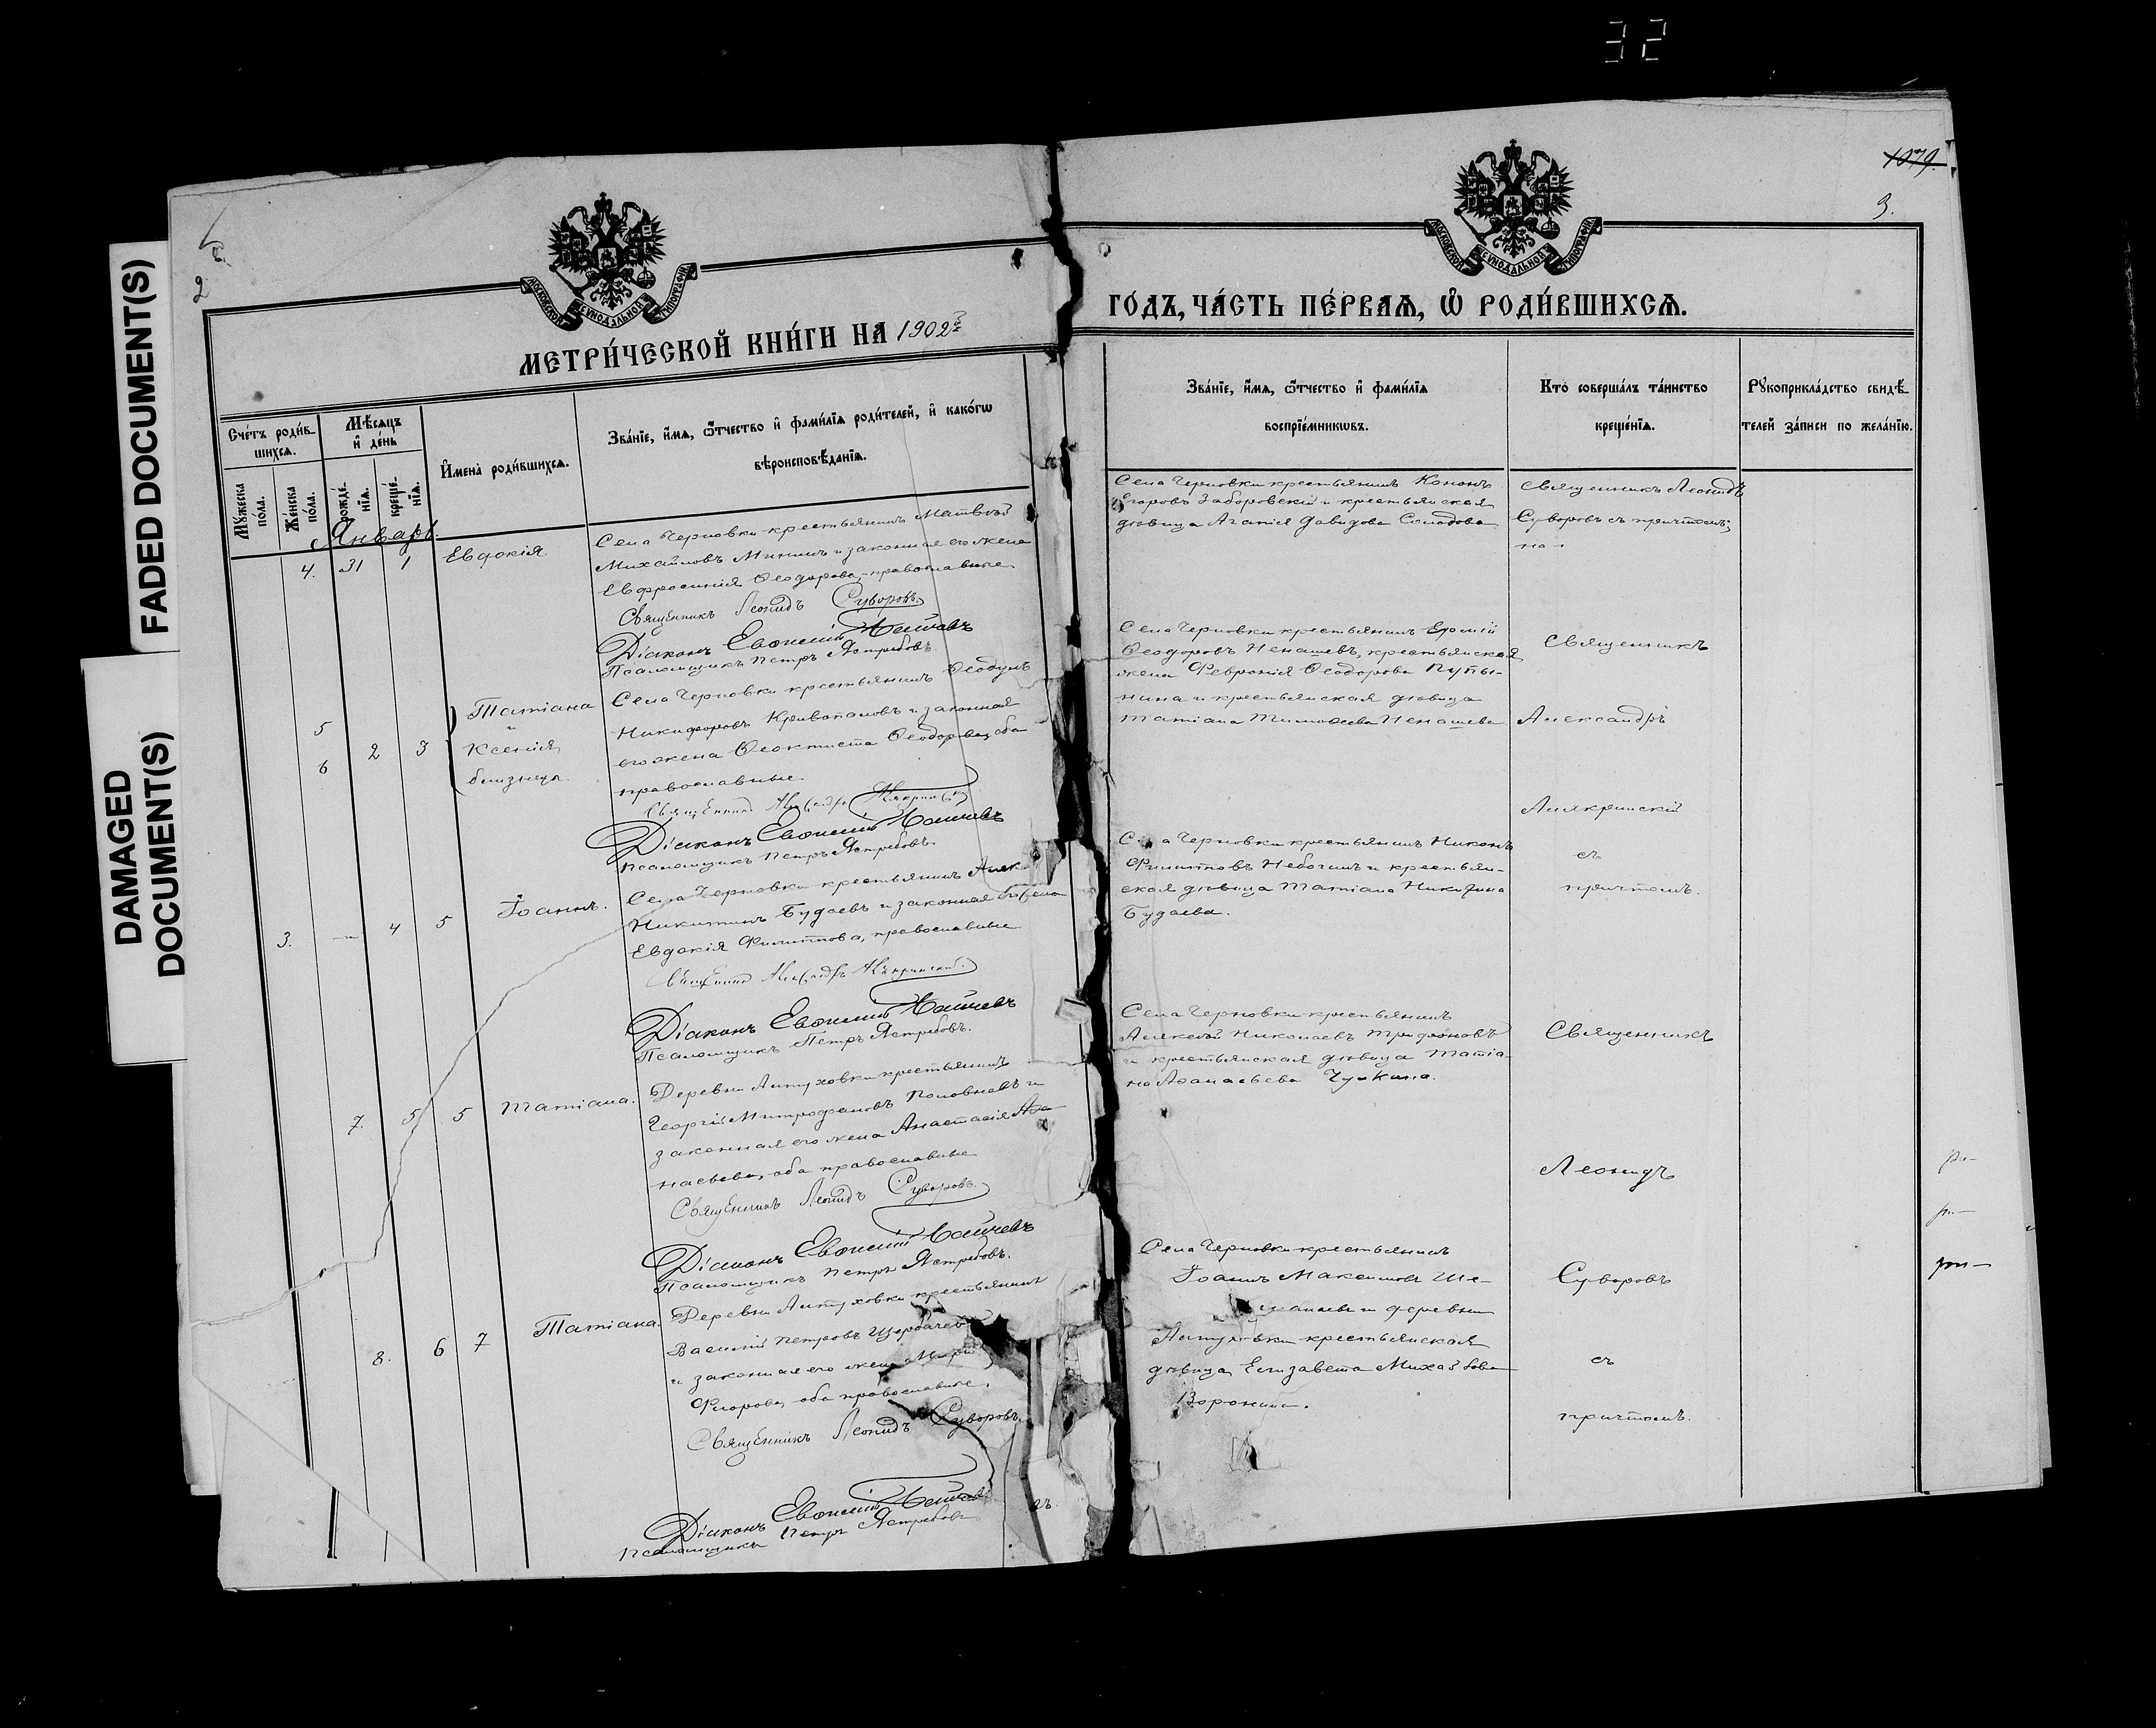 32
FADED DOCUMENT(S)
DAMAGED
DOCUMENT(S)
2
1079.
3.
МОСКОВСКОЙ СѴНОДАЛЬНОЙ ТИПОГРАФІИ
МОСКОВСКОЙ СѴНОДАЛЬНОЙ ТИПОГРАФІИ
МЕТРИ́ЧЕСКОЙ КНИ́ГИ НА 1902й
ГО́ДЪ, ЧА́СТЬ ПЕ́РВАѦ, Ѽ РОДИ́ВШИХСѦ.
Сче́тъ роди́в-
шихсѧ.
Мꙋ́жеска
по́ла.
Же́нска
по́ла.
Мѣ́сѧцъ
и҆ де́нь
рожде́-
нїѧ.
креще́-
нїѧ.
И҆мена̀ роди́вшихсѧ.
Зва́нїе, и҆́мѧ, ѻ҆́тчество и҆ фами́лїѧ роди́телей, и҆ како́гѡ
вѣроисповѣ́данїѧ.
Зва́нїе, и҆́мѧ, ѻ҆́тчество и҆ фами́лїѧ
воспрїе́мникѡвъ.
Кто̀ соверша́лъ та́инство
креще́нїѧ.
Рꙋкоприкла́дство свидѣ́-
телей за́писи по жела́нїю.
Январь.
4. 31 1 Евдокія
Села Черновки крестьянинъ Матвѣй
Михайловъ Мининъ и законная его жена
Евфросинія Ѳеодорова, православные.
Священникъ Леонидъ Суворовъ
Діаконъ Евѳимій
Псаломщикъ Петръ Ястребовъ.
Села Черновки крестьянинъ Кононъ
Егоровъ Заборовскій и крестьянская
дѣвица Агапія Давидова Солодова
Священникъ Леонидъ
Суворовъ съ причтомъ;
5
6
2 3
Татіана
и
Ксенія
близнецы.
Села Черновки крестьянинъ Ѳеодулъ
Никифоровъ Кривопаловъ и законная
его жена Ѳеоктиста Ѳеодорова, оба
православные
Священникъ Александръ Алякринскій
Діаконъ Евѳимій
Псаломщикъ Петръ Ястребовъ.
Села Черновки крестьянинъ Ермій
Ѳеодоровъ Ненашевъ, крестьянская
жена Февронія Ѳеодорова Пупы-
нина и крестьянская дѣвица
Татіана Тимоѳеева Ненашева
Священникъ
Александръ
Алякринскій
съ
причтомъ.
3. — 4 5 Іоаннъ.
Села Черновки крестьянинъ
Никитинъ Будаевъ и законная его жена
Евдокія Филиппова, православные
Священникъ Александръ Алякринскій.
Діаконъ Евѳимій
Псаломщикъ Петръ Ястребовъ.
Села Черновки крестьянинъ Никонъ
Филипповъ Небогинъ и крестьян-
ская дѣвица Татіана Никитина
Будаева.
7. 5 5 Татіана.
Деревни Липуховки крестьянинъ
Георгій Митрофановъ Половневъ и
законная его жена Анастасія Аѳа-
насьева, оба православные
Священникъ Леонидъ Суворовъ.
Діаконъ Евѳимій
Псаломщикъ Петръ Ястребовъ.
Села Черновки крестьянинъ
Алексѣй Николаевъ Трифоновъ
и крестьянская дѣвица Татіа-
на Аѳанасьева Чулкина.
Священникъ
Леонидъ
Суворовъ
съ
причтомъ.
8. 6 7 Татіана.
Деревни Липуховки крестьянинъ
Василій Петровъ Щербачевъ
и законная его жена Марія
Флорова, оба православные.
Священникъ Леонидъ Суворовъ.
Діаконъ Евѳимій
Псаломщикъ Петръ Ястребовъ
Села Черновки крестьянинъ
Іоаннъ Максимовъ
и деревни
Липуховки крестьянская
дѣвица Елизавета Михайлова
Воронина.